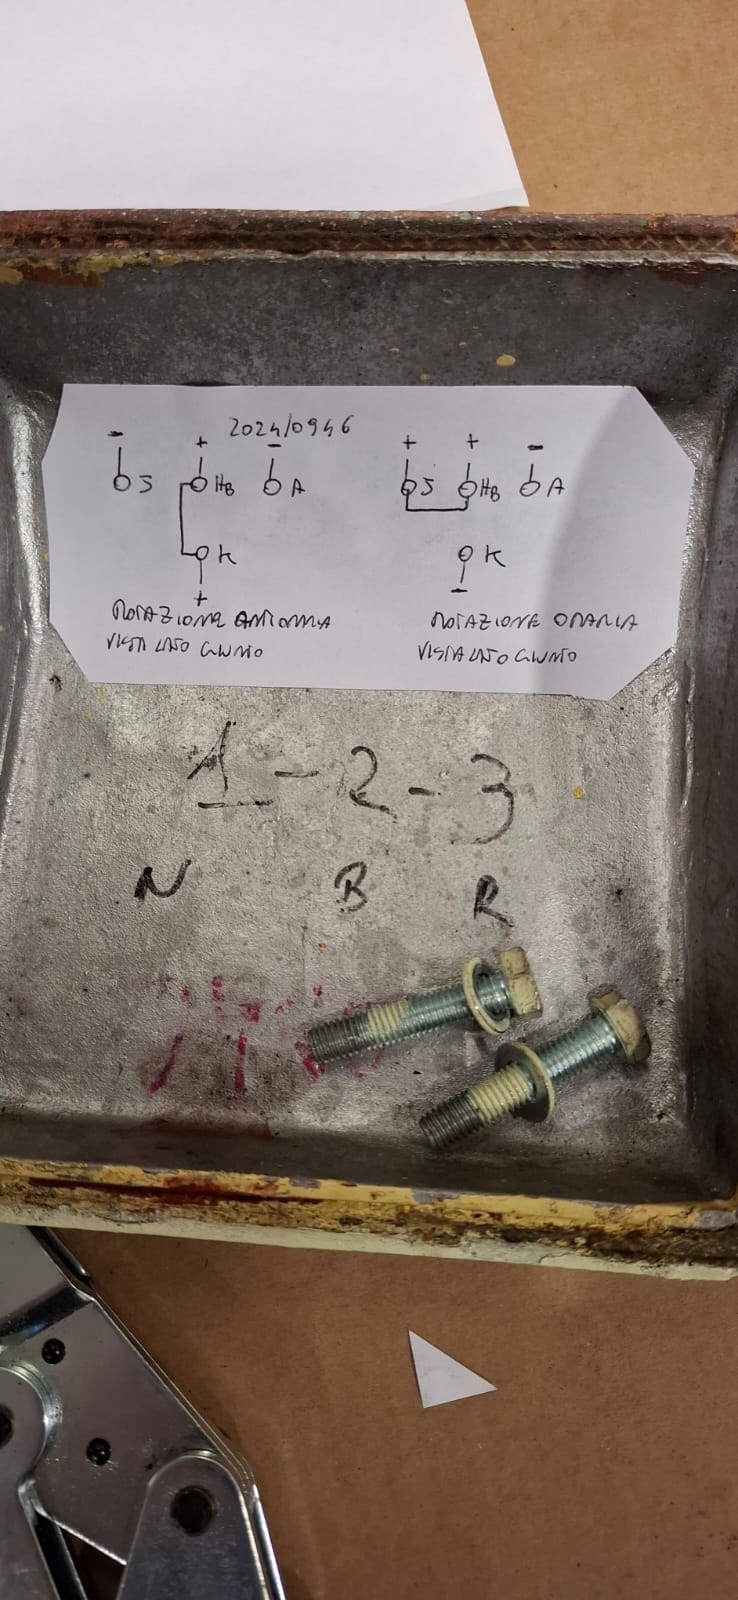 2024/0946
- + - + + -
J HB A J HB A
K K
+ -
ROTAZIONE ANTIORARIA ROTAZIONE ORARIA
VISTA LATO GIUNTO VISTA LATO GIUNTO
1 - 2 - 3
N B R